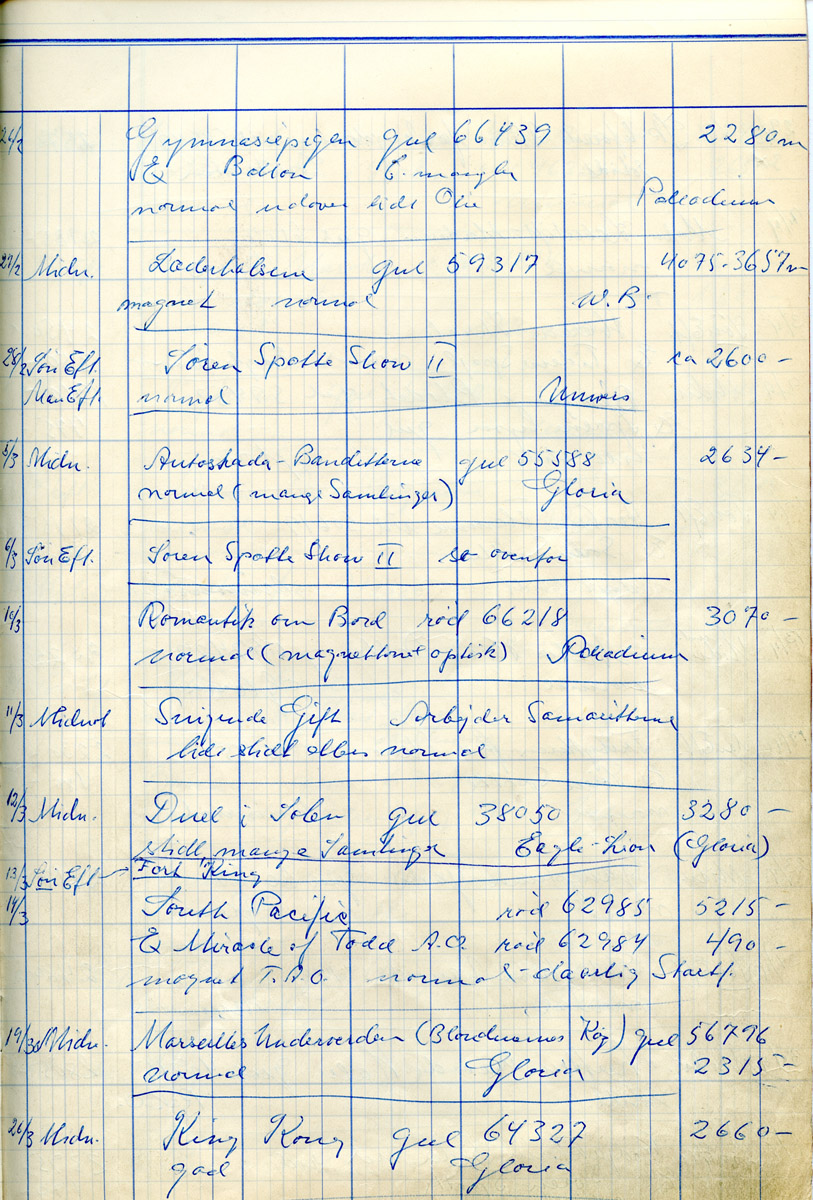 24/2 Gymnasiepigen gul 66439 2280m
& Ballon E. mangler
normal udover lidt Olie Palladium
27/2 Midn. Læderhalsene gul 59317 4075-3657m
magnet normal W.B.
28/2 Søn Eft. Søren Spætte Show II ca 2600 -
Man Eft. normal Univers
5/3 Midn. Autostrada-Banditterne gul 55588 2634 -
normal (mange Samlinger) Gloria
6/3 Søn Eft. Søren Spætte Show II se ovenfor
10/3 Romantik om Bord rød 66218 3070 -
normal (magnettonet optisk) Palladium
11/3 Midnat Snigende Gift Arbejder Samaritterne
lidt slidt ellers normal
12/3 Midn. Duel i Solen gul 38050 3280 -
slidt, mange Samlinger Eagle-Lion (Gloria)
13/3 Søn Eft Fort King
14/3 South Pacific rød 62985 5215 -
& Miracle of Todd A.O. rød 62984 490 -
magnet T.A.O. normal - daarlig Startf.
19/3 Midn. Marseilles Underverden (Blondinernes Køg) gul 56796
normal Gloria 2315 -
26/3 Midn. King Kong gul 64327 2660 -
god Gloria